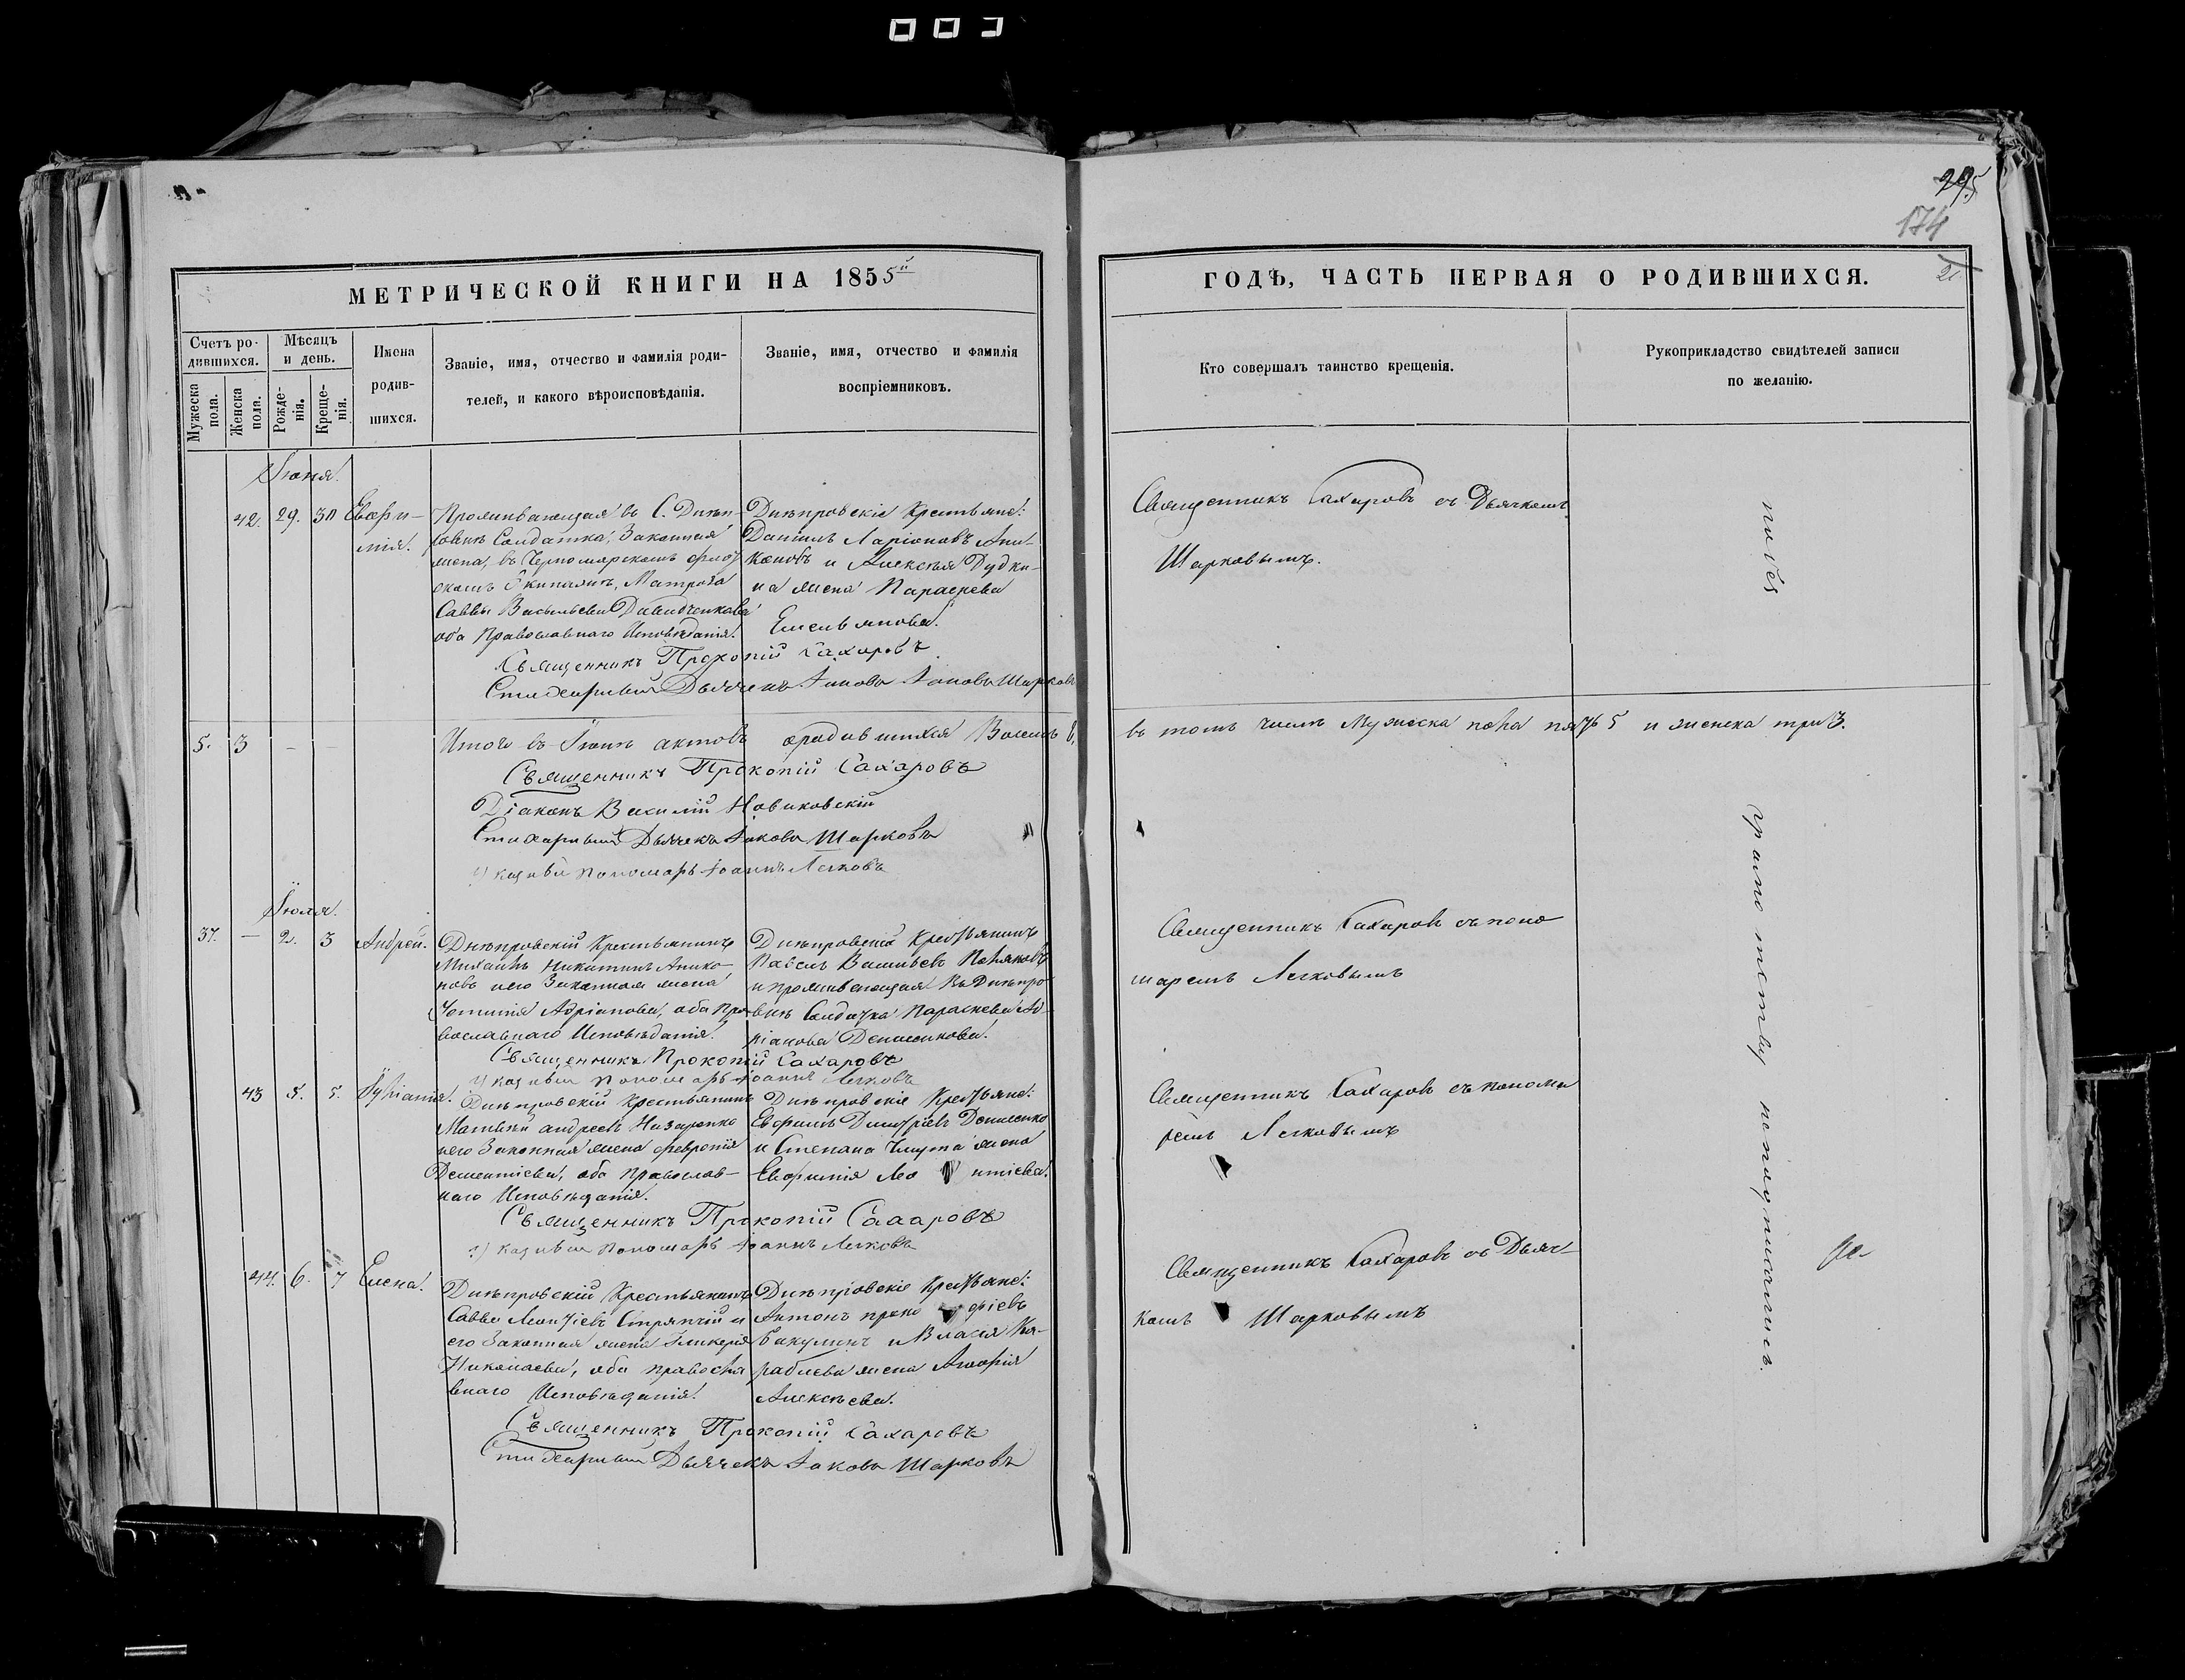 295
174
МЕТРИЧЕСКОЙ КНИГИ НА 1855й
ГОДЪ, ЧАСТЬ ПЕРВАЯ О РОДИВШИХСЯ.
Счетъ родившихся.
Мѣсяцъ и день.
Имена родившихся.
Званіе, имя, отчество и фамилія родителей, и какого вѣроисповѣданія.
Званіе, имя, отчество и фамилія воспріемниковъ.
Кто совершалъ таинство крещенія.
Рукоприкладство свидѣтелей записи по желанію.
Мужеска пола.
Женска пола.
Рожденія.
Крещенія.
Іюня.
42. 29. 30 Евфимія.
Проживающая въ С. Днѣп-
ровкѣ Солдатка, Законная
жена, въ Черноморскомъ флот
скомъ Экипажѣ, Матроза
Саввы Васильева Давидченкова
оба Православнаго Исповѣданія.
Днѣпровскіе Крестьяне:
Даніилъ Ларіоновъ Ани-
кановъ и Алексѣя Дудки-
на жена Параскева
Емельянова.
Священникъ Сахаровъ съ Дьячкомъ
Шарковымъ.
Священникъ Прокопій Сахаровъ
Стихарный Дьячекъ Іаковъ Шарковъ
5. 3 — — Итого въ Іюнѣ актовъ о родившихся Восемь 8,
въ томъ числѣ Мужеска пола пять 5 и женска три 3.
Священникъ Прокопій Сахаровъ
Діаконъ Василій Новиковскій
Стихарный Дьячекъ Іаковъ Шарковъ
Указный Пономарь Іоаннъ Легковъ
Іюля.
37. — 2. 3 Андрей.
Днѣпровскій Крестьянинъ
Михаилъ Никитинъ Анико-
новъ и его Законная жена
Адріанова, оба Пра-
вославнаго Исповѣданія.
Днѣпровскій Крестьянинъ
Павелъ Васильевъ Поляковъ
и проживающая въ Днѣпро
вкѣ Солдатка Параскева Ад-
ріанова Денисикова.
Священникъ Сахаровъ съ поно
маремъ Легковымъ
Священникъ Прокопій Сахаровъ
Указный Пономарь Іоаннъ Легковъ
43 5. 5. Іуліанія.
Днѣпровскій Крестьянинъ
Матвѣй Андреевъ Назаренко
и его Законная жена Февронія
Дементіева, оба Православ-
наго Исповѣданія.
Днѣпровскіе Крестьяне:
Евфимъ Дмитріевъ Денисенко
и Степана жена
Евфимія Леонтіева.
Священникъ Сахаровъ съ понома
ремъ Легковымъ
Священникъ Прокопій Сахаровъ
Указный Пономарь Іоаннъ Легковъ
44. 6. 7 Елена.
Днѣпровскій Крестьянинъ
Савва Леонтіевъ Стряпчій и
его Законная жена Гликерія
Николаева, оба правосла
внаго Исповѣданія.
Днѣпровскіе Крестьяне:
Антонъ Прокофіевъ
Бакулинъ и Власія Ка-
рабцева жена Агафія
Алексѣева.
Священникъ Сахаровъ съ Дьяч-
комъ Шарковымъ
Священникъ Прокопій Сахаровъ
Стихарный Дьячекъ Іаковъ Шарковъ